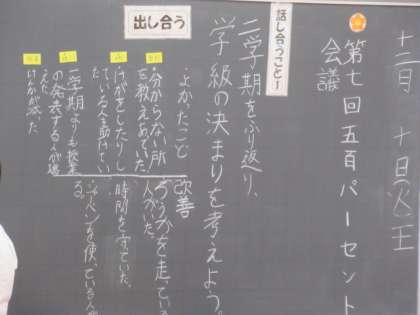 十二月十日(火)王
第七回五百パーセント
会議
話し合うこと
二学期をふり返り、
学級の決まりを考えよう。
出し合う
よかったこと
分からない所
を教えあっていた
けがをしたりし
ている人を助けてい
た
二学期よりも授業
の発表する人が増
えた
けんかが減った
改善
ろうかを走っている
人がいた。
時間を守っていた。
シャーペンを使っている人が
る。